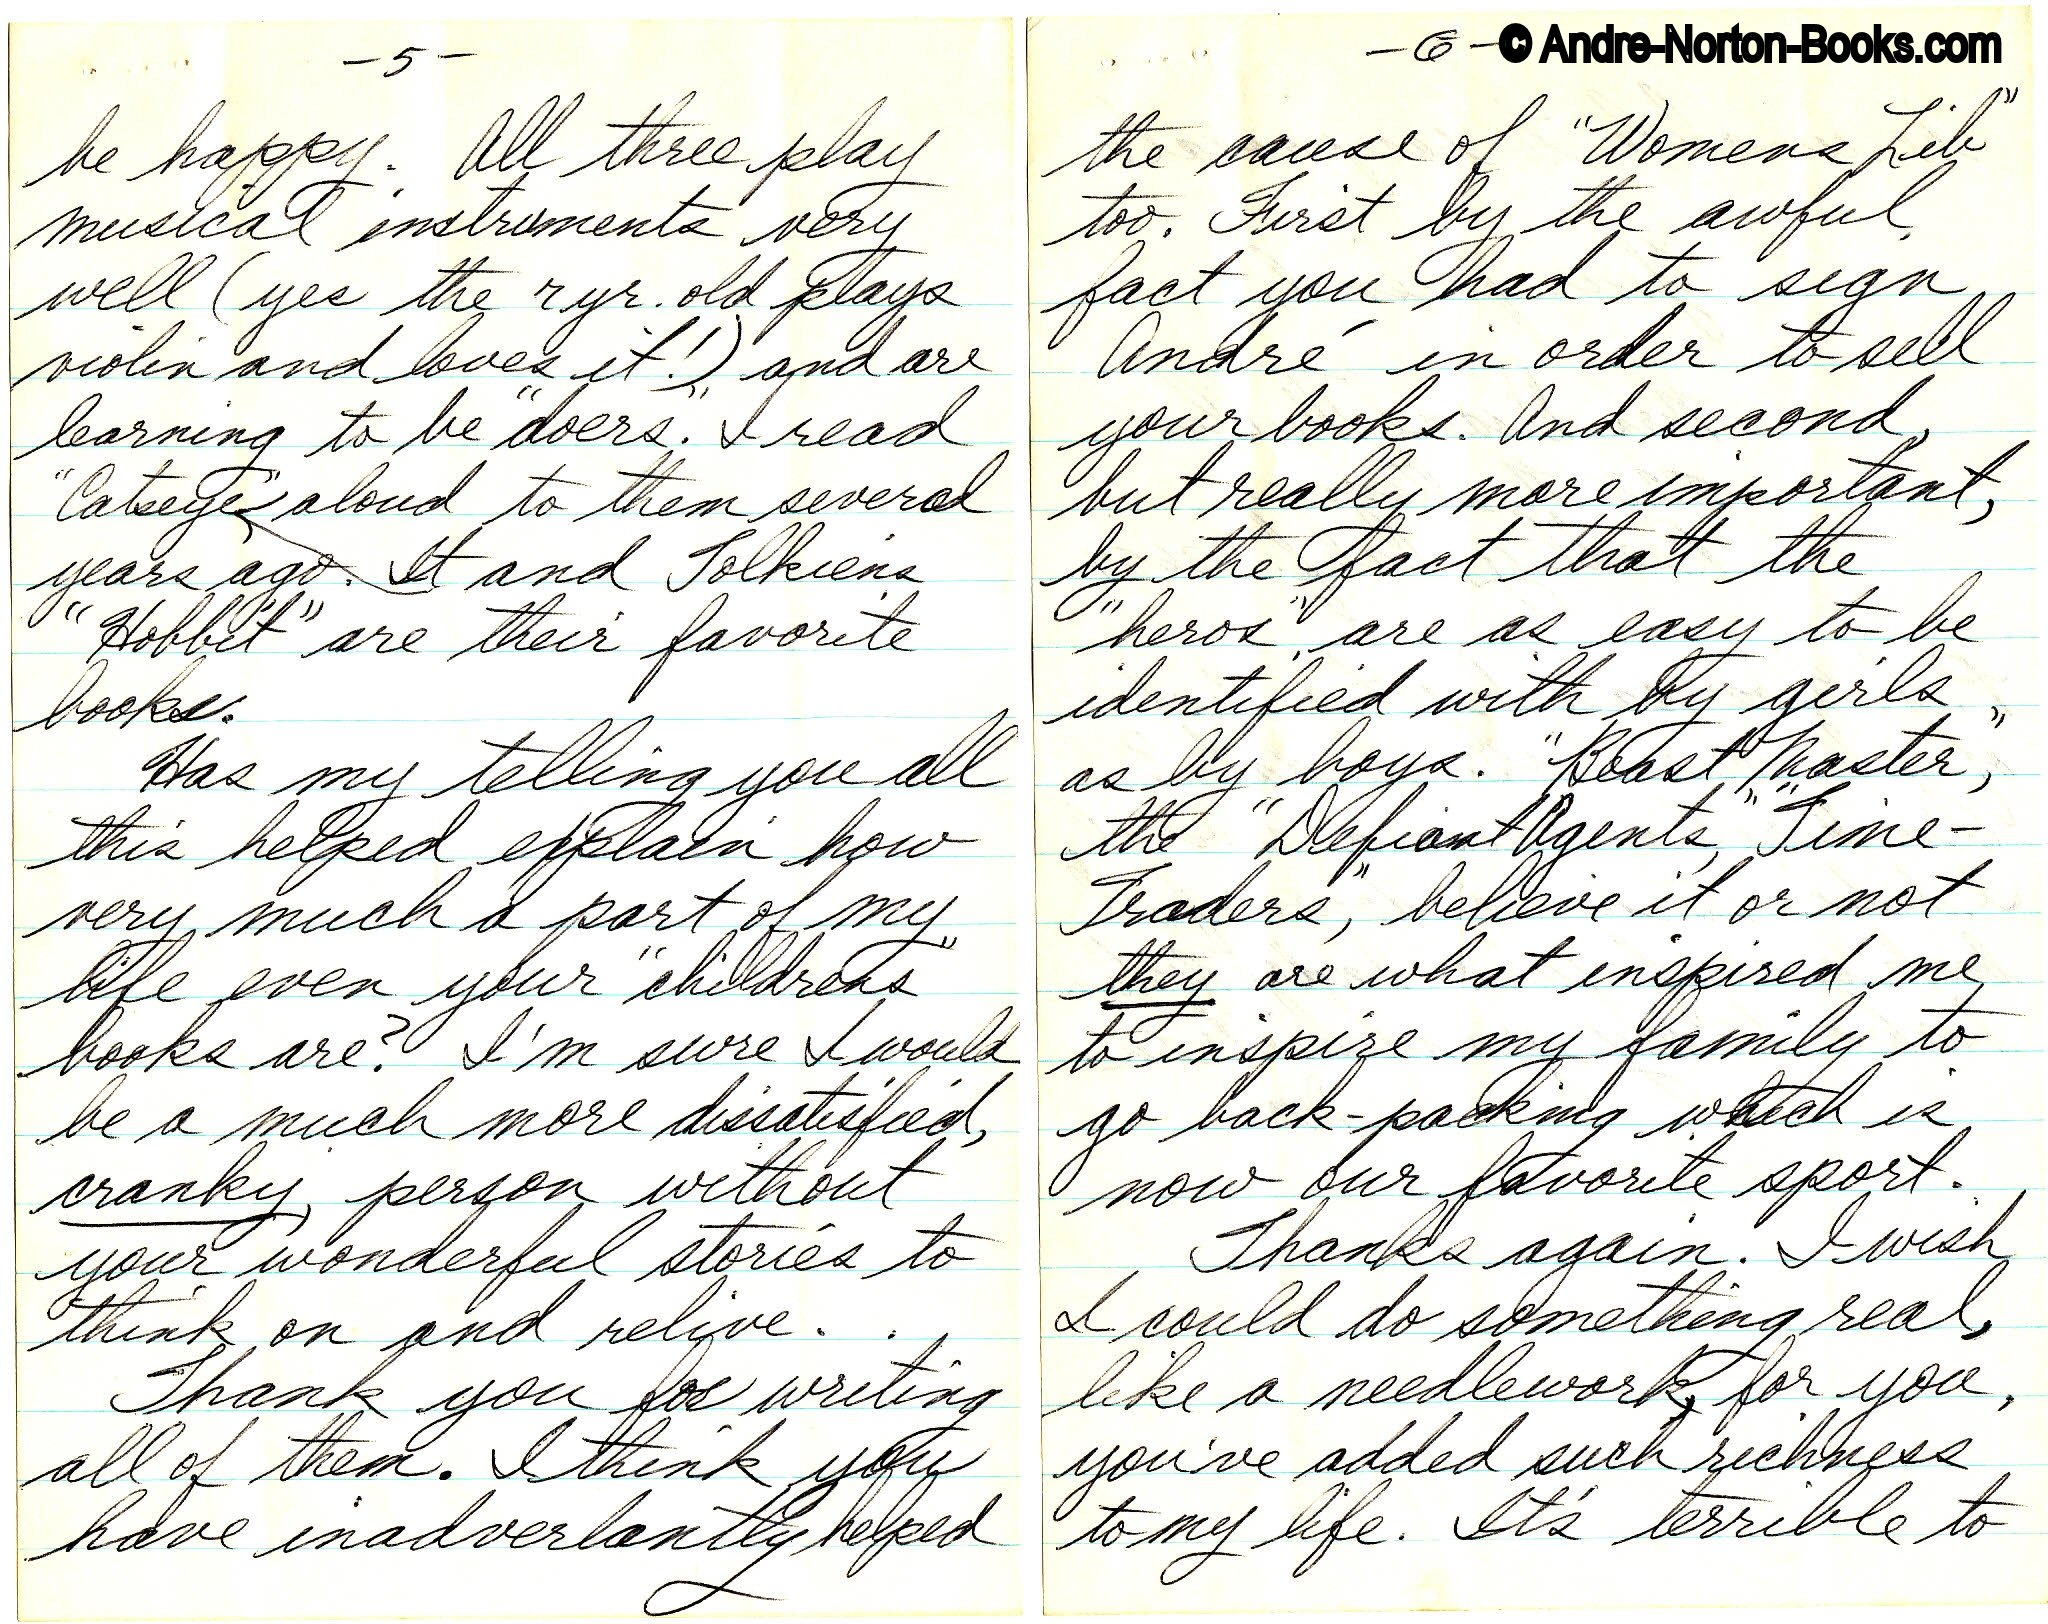 -5-
be happy. All three play
musical instruments very
well (yes the 7 yr. old plays
violin and loves it!) and are
learning to be "doers." I read
"Catseye" aloud to them several
years ago. It and Tolkiens
"Hobbit" are their favorite
books.
Has my telling you all
this helped explain how
very much a part of my
life even your "childrens"
books are? I'm sure I would
be a much more dissatisfied,
cranky, person without
your wonderful stories to
think on and relive.
Thank you for writing
all of them. I think you
have inadvertantly helped
-6-
© Andre-Norton-Books.com
the cause of "Womens Lib"
too. First by the awful
fact you had to sign
André in order to sell
your books. And second,
but really more important,
by the fact that the
"heros" are as easy to be
identified with by girls
as by boys. "Beast Master,"
the "Defiant Agents," "Time-
Traders", believe it or not
they are what inspired me
to inspire my family to
go back-packing which is
now our favorite sport.
Thanks again. I wish
I could do something real,
like a needlework, for you,
you've added such richness
to my life. It's terrible to